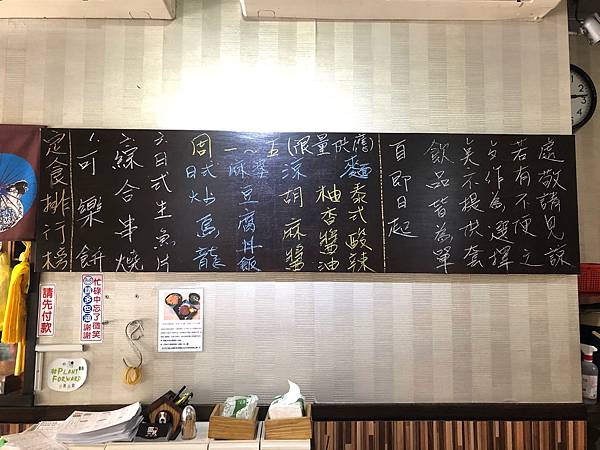 定食排行榜
1.可樂餅
2.綜合串燒
3.日式生魚片
周一~五(限量供應)
日式炒烏龍
麻婆豆腐丼飯
涼麵
胡麻醬
柚香醬油
泰式酸辣
自即日起
飲品皆為單
点不提供套
歺作為選擇
若有不便之
處敬請見諒
請先付款
忙碌中忘了微笑
請多包涵 謝謝
#PLANT
FORWARD